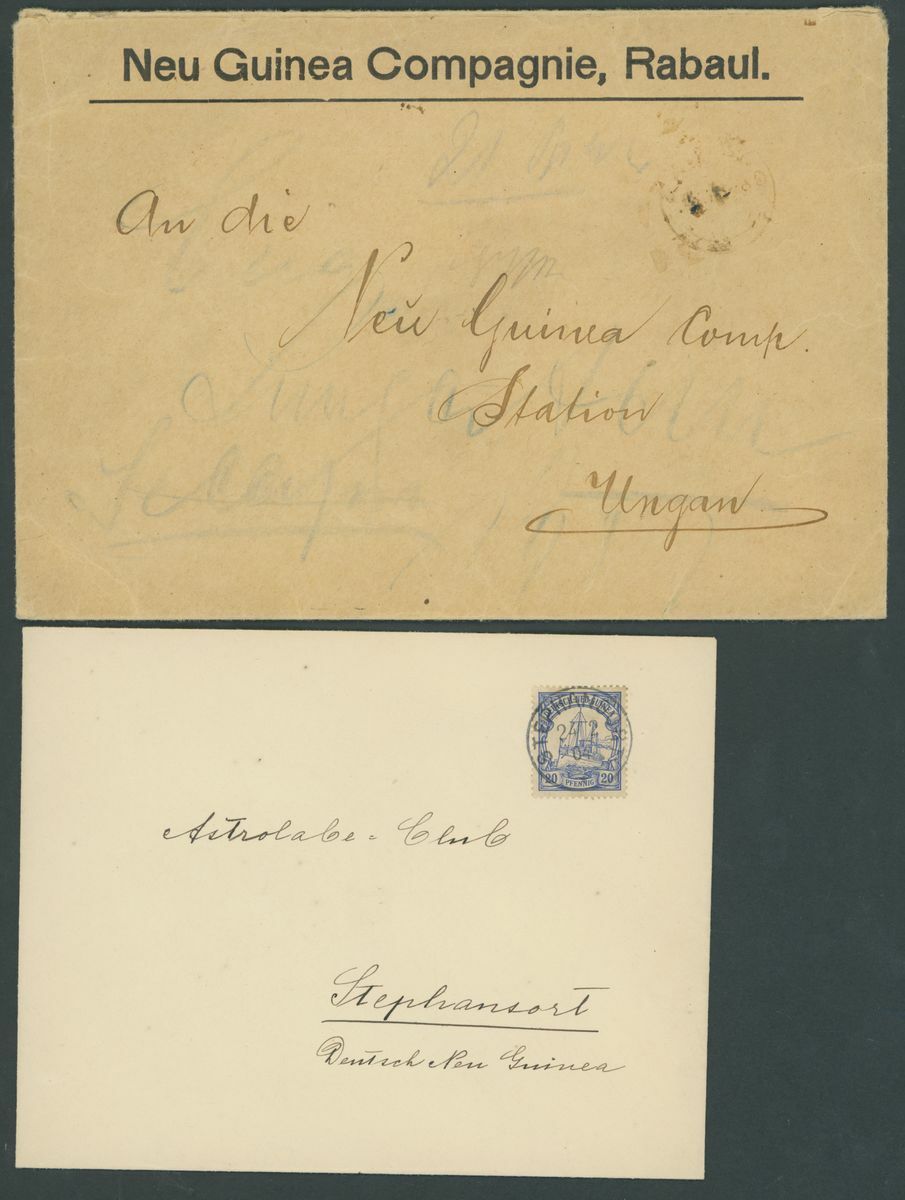 Neu Guinea Compagnie, Rabaul.
An die
Neu Guinea Comp.
Station
Ungan
DEUTSCH-NEU-GUINEA
24 2
04
20 PFENNIG 20
Astrolabe-Club
Stephansort
Deutsch Neu Guinea